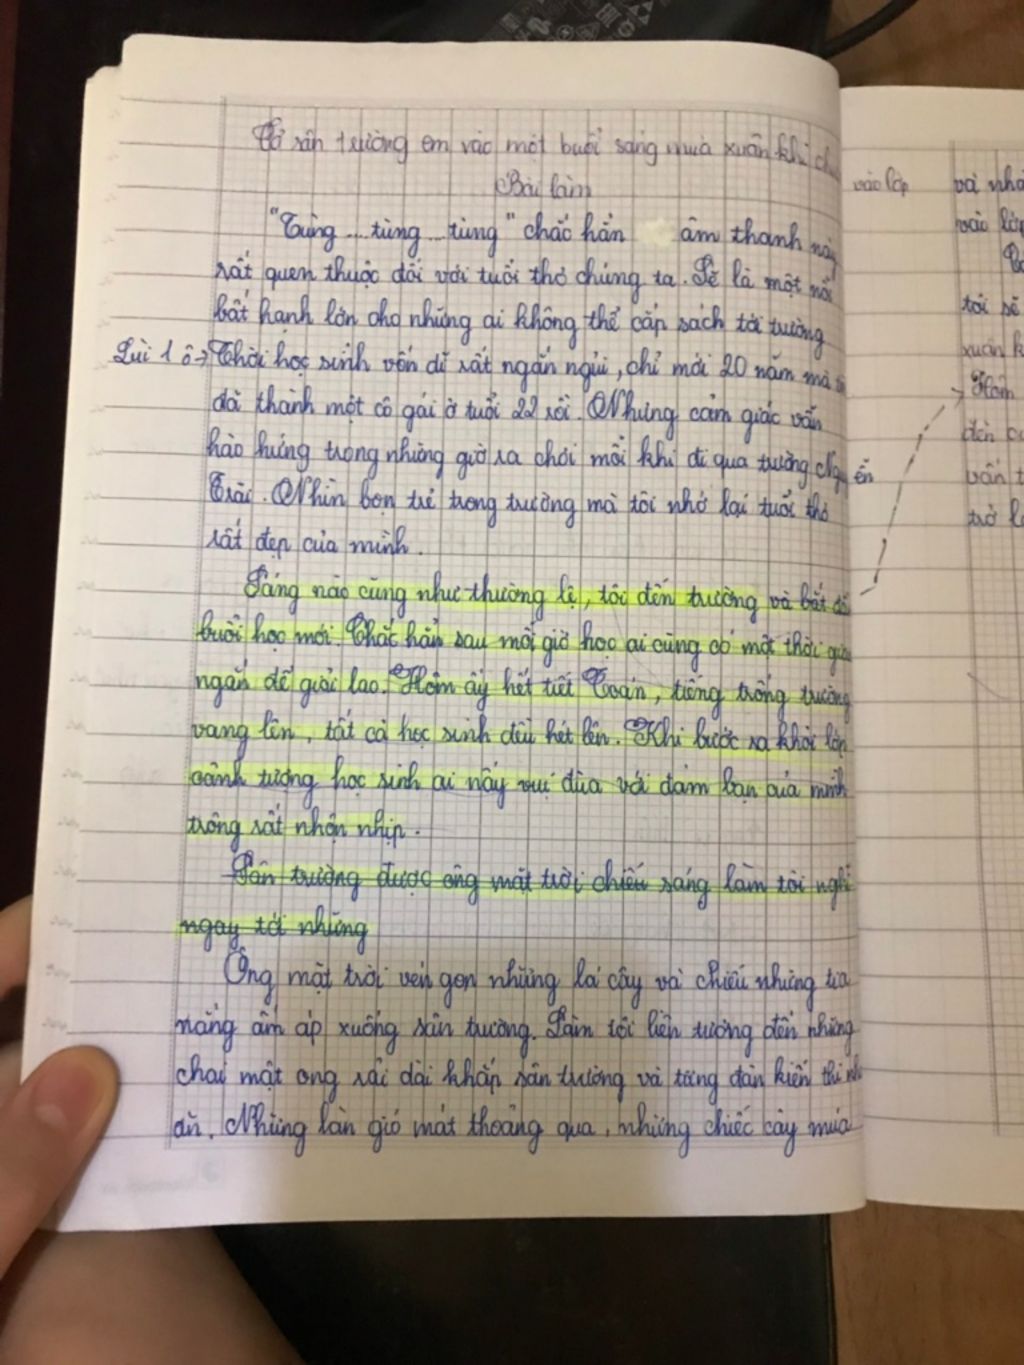 Tả sân trường em vào một buổi sáng mùa xuân khi
vào lớp
Bài làm
"Tùng ... tùng ... tùng" chắc hẳn âm thanh này
rất quen thuộc đối với tuổi thơ chúng ta. Sẽ là một nỗi
bất hạnh lớn cho những ai không thể cắp sách tới trường
Lùi 1 ô → Thời học sinh vốn dĩ rất ngắn ngủi, chỉ mới 20 năm mà
đã thành một cô gái ở tuổi 22 rồi. Nhưng cảm giác vẫn
hào hứng trong những giờ ra chơi mỗi khi đi qua trường Nguyễn
Trãi. Nhìn bọn trẻ trong trường mà tôi nhớ lại tuổi thơ
rất đẹp của mình.
Sáng nào cũng như thường lệ, tôi đến trường và bắt đầu
buổi học mới. Chắc hẳn sau mỗi giờ học ai cũng có một thời gian
ngắn để giải lao. Hôm ấy hết tiết Toán, tiếng trống trường
vang lên, tất cả học sinh đều hét lên. Khi bước ra khỏi lớp
cảnh tượng học sinh ai nấy vui đùa với đám bạn của mình
trông rất nhộn nhịp.
Sân trường được ông mặt trời chiếu sáng làm tôi nghĩ
ngay tới những
Ông mặt trời vén gọn những lá cây và chiếu những tia
nắng ấm áp xuống sân trường. Làm tôi liên tưởng đến những
chai mật ong rải dài khắp sân trường và từng đàn kiến thi nhau
ăn. Những làn gió mát thoảng qua, những chiếc cây múa
và nhả
vào lớp
tôi sẽ
xuân k
Hôm
đến
vẫn t
trở l